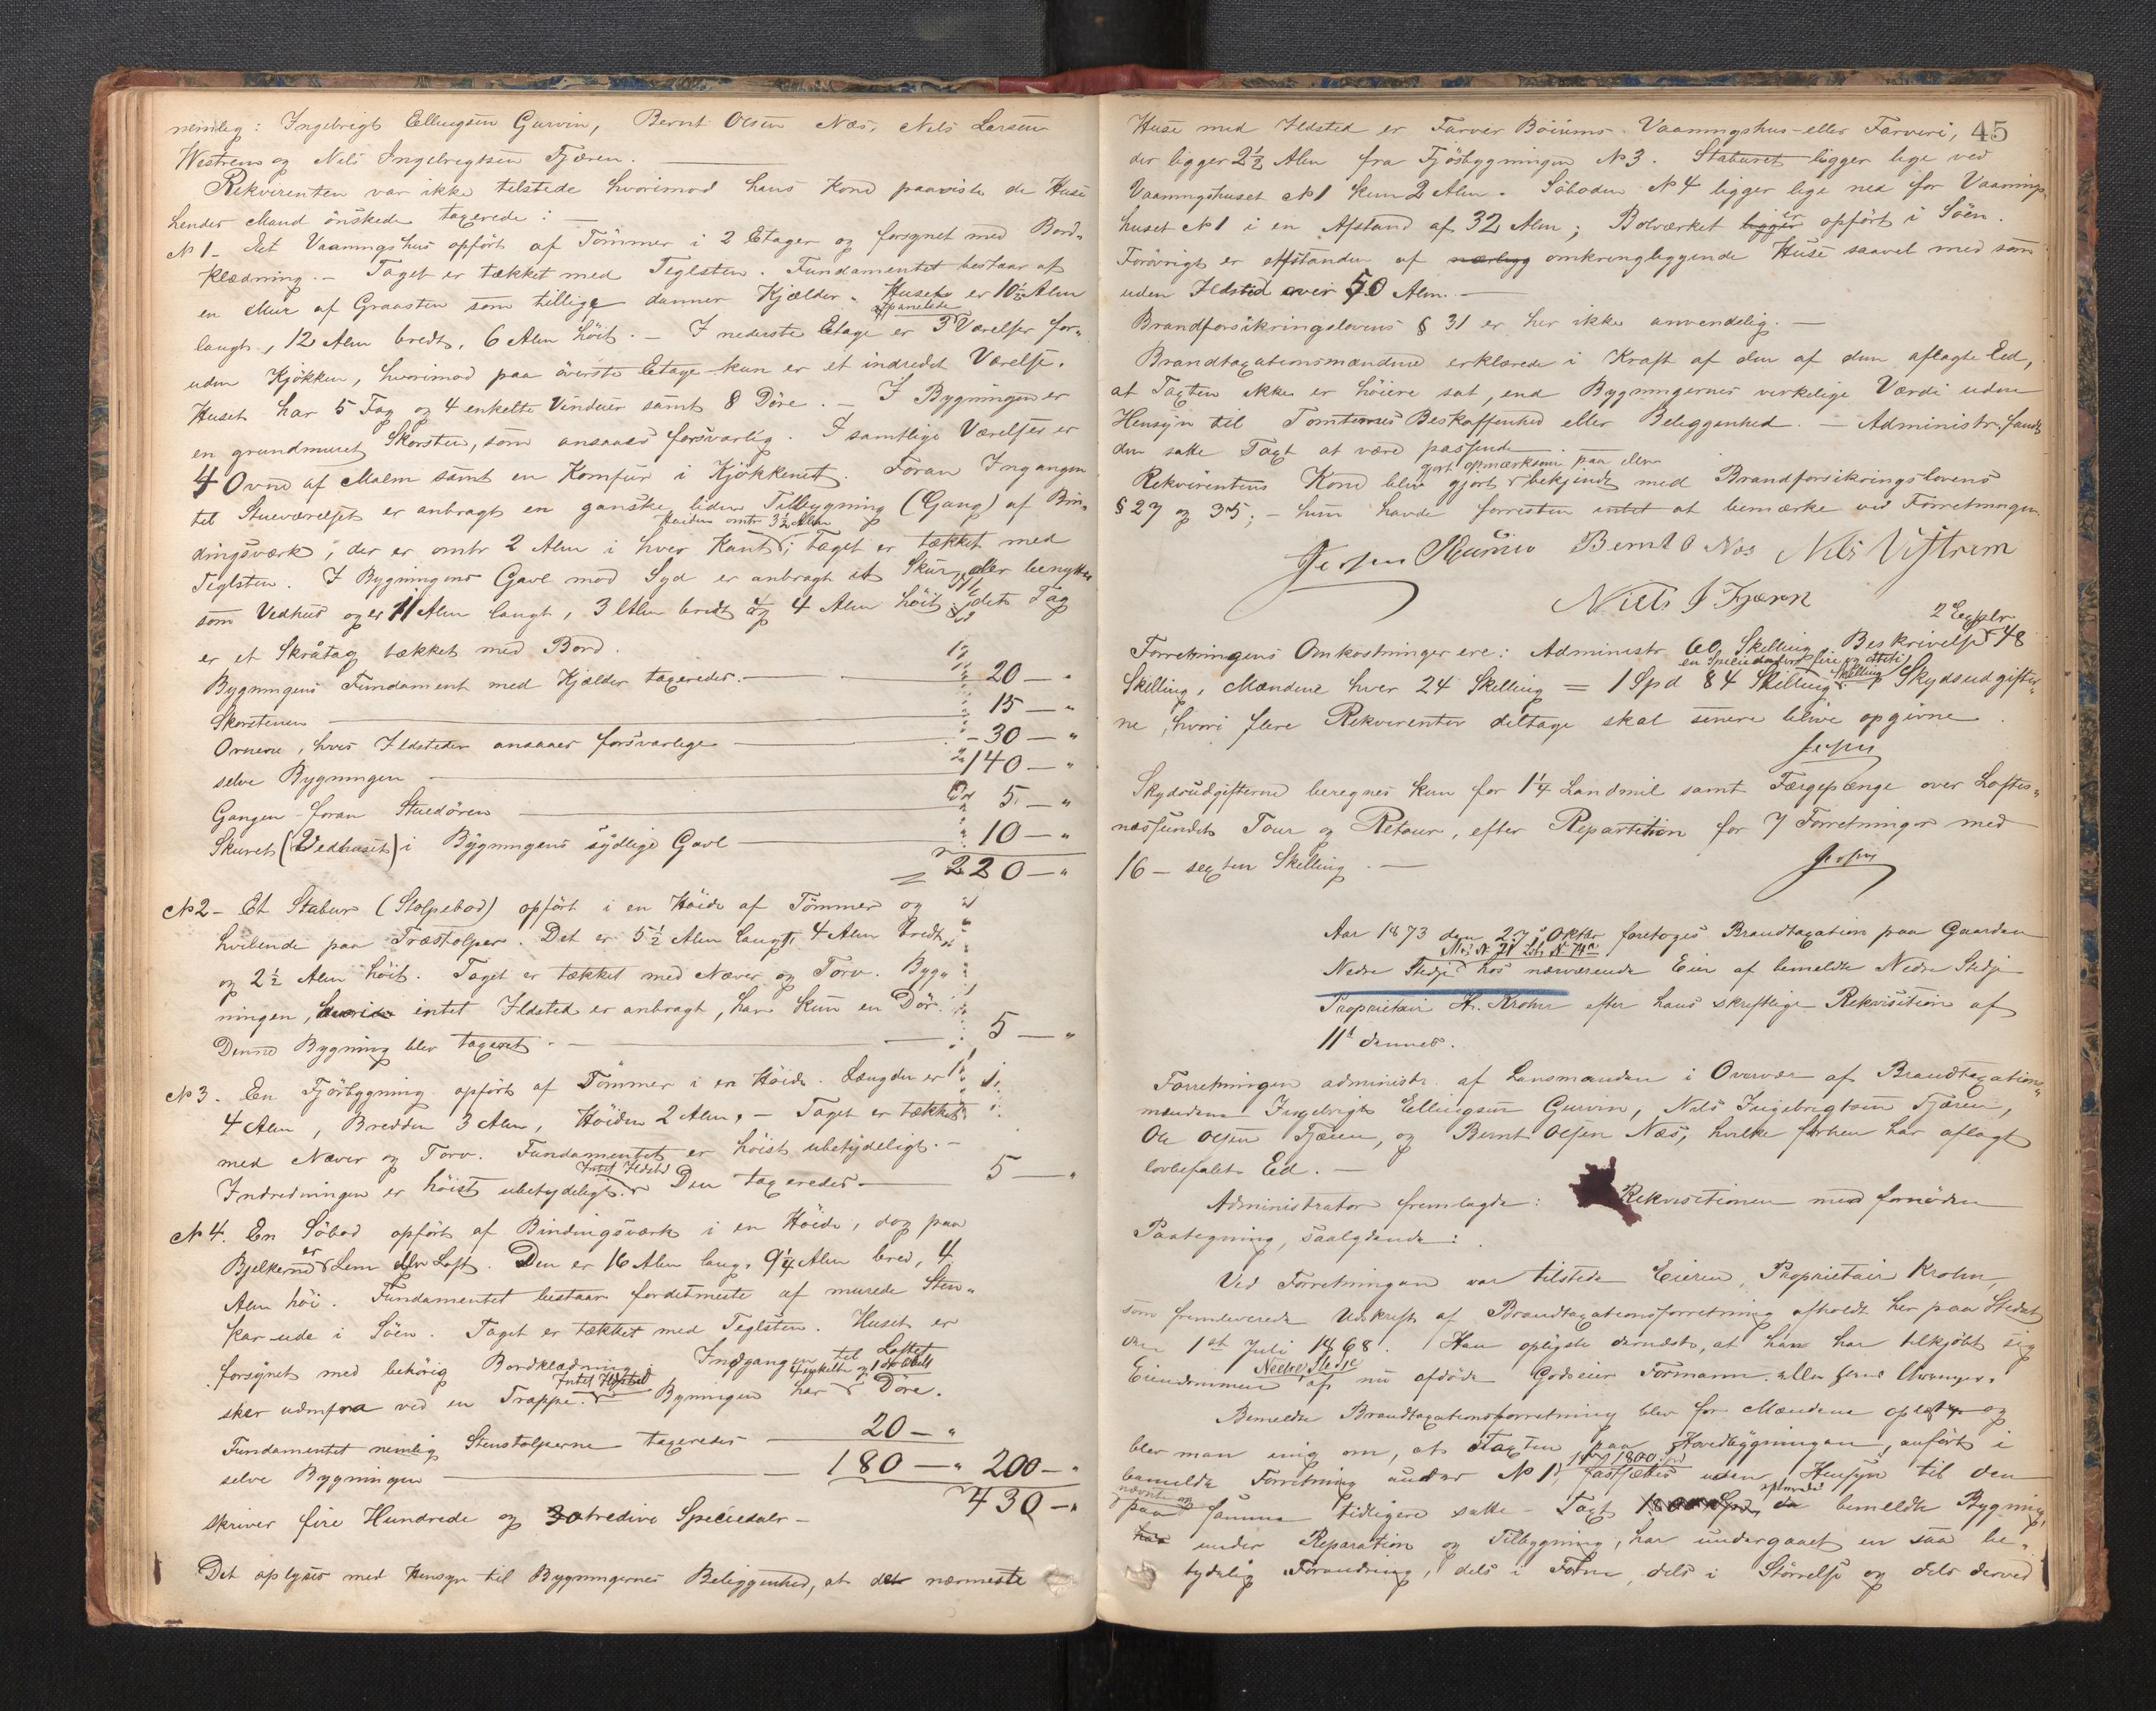 nemlig: Ingebregt Ellingsen Gurvin, Bernt Olsen Næs, Nils Larsen
Westrem og Nils Ingebregtsen Fjæren.
Rekvirenten var ikke tilstede hvorimod hans Kone paaviste de Huse
hendes Mand önskede taxerede:
No 1 - Et Vaaningshus opfört af Tömmer i 2 Etager og forsynet med Bord-
klædning. - Taget er tækket med Teglsten. Fundamentet bestaar af
en Mur af Graasten som tillige danner Kjælder. Huset er 10½ Alen
langt, 12 Alen bredt, 6 Alen höit. - I nederste Etage er 3 panelede Værelser for-
uden Kjökken, hvorimod paa överste Etage kun er et indredet Værelse.
Huset har 5 Fag og 4 enkelte Vinduer samt 8 Döre. - I Bygningen er
en grundmuret Skorsten, som ansaaes forsvarlig. I samtlige Værelser er
4 Ovne af Malm samt en Komfur i Kjökkenet. Foran Ingangen
til Stueværelset er anbragt en ganske liden Tilbygning (Gang) af Bin-
dingsværk, der er omtr 2 Alen i hver Kant, Heiden omtr 3½ Alen; Taget er tækket med
Teglsten. I Bygningens Gavl mod Syd er anbragt et Skur, der benyttes
som Vedhus og er 11 Alen langt, 3 Alen bredt og 4 Alen höit, dets Tag
er et Skråtag tækket med Bord.
Bygningens Fundament med Kjælder taxeredes. 20 — "
Skorstenen 15 — "
Ovnene, hvis Ildsteder ansaaes forsvarlige 30 — "
selve Bygningen 140 — "
Gangen foran Stuedören 5 — "
Skuret (Vedhuset) i Bygningens sydlige Gavl 10 — "
= 220 — "
No 2 - Et Stabur (Stolpebod) opfört i en Höide af Tömmer og
hvilende paa Træstolper. Det er 5½ Alen langt, 4 Alen bredt
og 2½ Alen höit. Taget er tækket med Næver og Torv. Byg-
ningen, hvori intet Ildsted er anbragt, har kun en Dör.
Denne Bygning blev taxeret 5 — "
No 3. En Fjösbygning opfört af Tömmer i en Höide. Længden er
4 Alen, Bredden 3 Alen, Höiden 2 Alen. - Taget er tækket
med Næver og Torv. Fundamentet er höist ubetydeligt. -
Indredningen er höist ubetydelig. Intet Ildsted Den taxeredes 5 — "
No 4. En Söbod opfört af Bindingsværk i en Höide, dog paa
Bjelkerne er Lem eller Loft. Den er 16 Alen lang, 9¼ Alen bred, 4
Alen höi. Fundamentet bestaar fordetmeste af murede Sten-
kar ude i Söen. Taget er tækket med Teglsten. Huset er
forsynet med behörig Bordklædning. Indgangen til Loftet
sker udenfra ved en Trappe. Intet Ildsted Bygningen har 4 enkelte og 1 dobbelt Döre.
Fundamentet nemlig Stenstolperne taxeredes 20 — "
selve Bygningen 180 — " 200 — "
430 — "
skriver fire Hundrede og tredive Speciedaler -
Det oplyses med Hensyn til Bygningernes Beliggenhed, at det nærmeste
45
Huse med Ildsted er Farver Böiums Vaaningshus eller Farveri,
der ligger 2½ Alen fra Fjösbygningen No 3. Staburet ligger lige ved
Vaaningshuset No 1 kun 2 Alen. Söboden No 4 ligger lige ned for Vaanings-
huset No 1 i en Afstand af 32 Alen; Bolværket er opfört i Söen.
Forövrigt er Afstanden af omkringliggende Huse saavel med som
uden Ildsted over 50 Alen. -
Brandforsikringslovens § 31 er her ikke anvendelig. -
Brandtaxationsmændene erklærede i Kraft af den af dem aflagte Eed,
at Taxten ikke er höiere sat, end Bygningernes virkelige Værdi uden
Hensyn til Tomternes Beskaffenhed eller Beliggenhed. - Administr. fandt
den satte Taxt at være passende
Rekvirentens Kone blev gjort gjort opmærksom paa den bekjendt med Brandforsikringslovens
§ 27 og 35; - hun havde forresten intet at bemærke ved Forretningen
Bernt O Næs Nils Vestrem
Niels I Fjæren
Forretningens Omkostninger ere: Administr 60 Skilling, Beskrivelse 2 Expl. 48
Skilling, Mændene hver 24 Skilling = 1 Spd 84 Skilling en Speciedaler fire og otteti Skilling. Skydsudgifter-
ne, hvori flere Rekvirenter deltage skal senere blive opgivne
Skydsudgifterne beregnes kun for 1¼ Landmil samt Færgepænge over Loftes-
næssundet Tour og Retour, efter Repartition for 7 Forretninger med
16 - sexten Skilling. -
Aar 1873 den 27de Oktbr foretoges Brandtaxation paa Gaarden
Nedre Stedje hos nærværende Eier af bemeldte Nedre Stedje
Proprietair H. Krohn efter hans skriftlige Rekvisition af
11te dennes.
Forretningen administr. af Lensmanden i Overvær af Brandtaxations-
mændene Ingebrigt Ellingsen Gurvin, Nils Ingebrigtsen Fjæren,
Ole Olsen Fjæren, og Bernt Olsen Næs, hvilke forhen har aflagt
lovbefalet Ed. -
Administrator fremlagde: Rekvisitionen med fornöden
Paategning, saalydende:
Ved Forretningen var tilstede Eieren, Proprietair Krohn,
som fremleverede Udskrift af Brandtaxationsforretning afholdt her paa Stedet
den 1st Juli 1868. Han oplyste dernæst, at han har tilkjöbt sig
Eiendommen Nedre Stedje af nu afdöde Godseier Formann
Bemeldte Brandtaxationsforretning blev for Mændene oplæst og
blev man enig om, at Taxten paa Hovedbygningen, anfört i
bemeldte Forretning under No 1, fastsættes uden Hensyn til den
paa samme tidligere satte Taxt bemeldte Bygning,
under Reparation og Tilbygning, har undergaaet en saa be-
tydelig Forandring, dels i Form, dels i Störrelse og dels derved